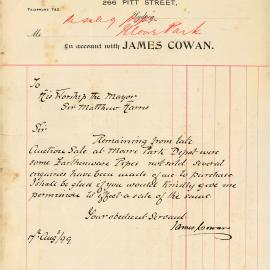 266 PITT STREET,
TELEPHONE 742.
Sydney
Moore Park
M
in account with JAMES COWAN.
To
His Worship the Mayor
Sir Matthew Harris
Sir
Remaining from late
Auction Sale at Moore Park Depot were
some Earthenware Pipes not sold. Several
enquiries have been made of me to purchase
I shall be glad if you would kindly give me
permission to effect a sale of the same
Your obedient Servant
James Cowan
17th Aug/99